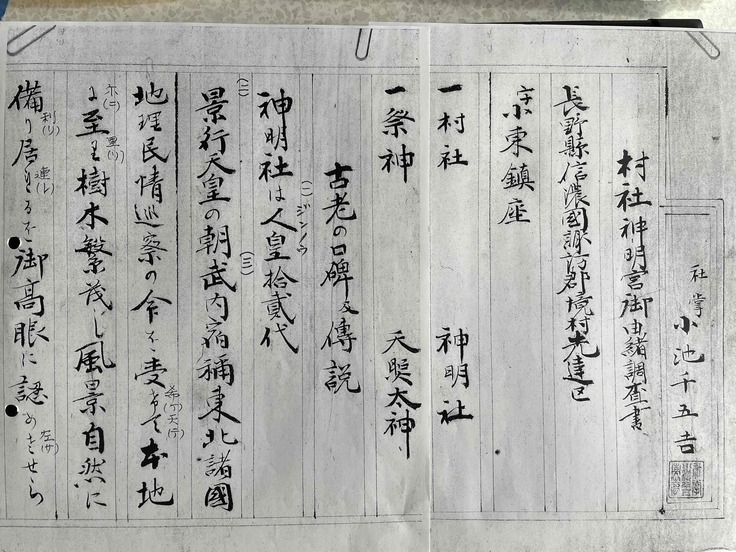 社掌 小池千五吉
村社神明宮御由緒調査書
長野縣信濃國諏訪郡境村先達区
字小東鎮座
一村社 神明社
一祭神 天照太神
古老の口碑及傳説
神明社は人皇拾貳代
(一)ジンノウ
景行天皇の朝武内宿禰東北諸國
(二) (三)
地理民情巡察の命を受けて本地
希(ケ)天(テ)
に至り樹木繁茂し風景自然に
尓(ニ) 里(リ)
備り居れるを御高眼に認めさせら
利(リ) 連(レ) 左(サ)